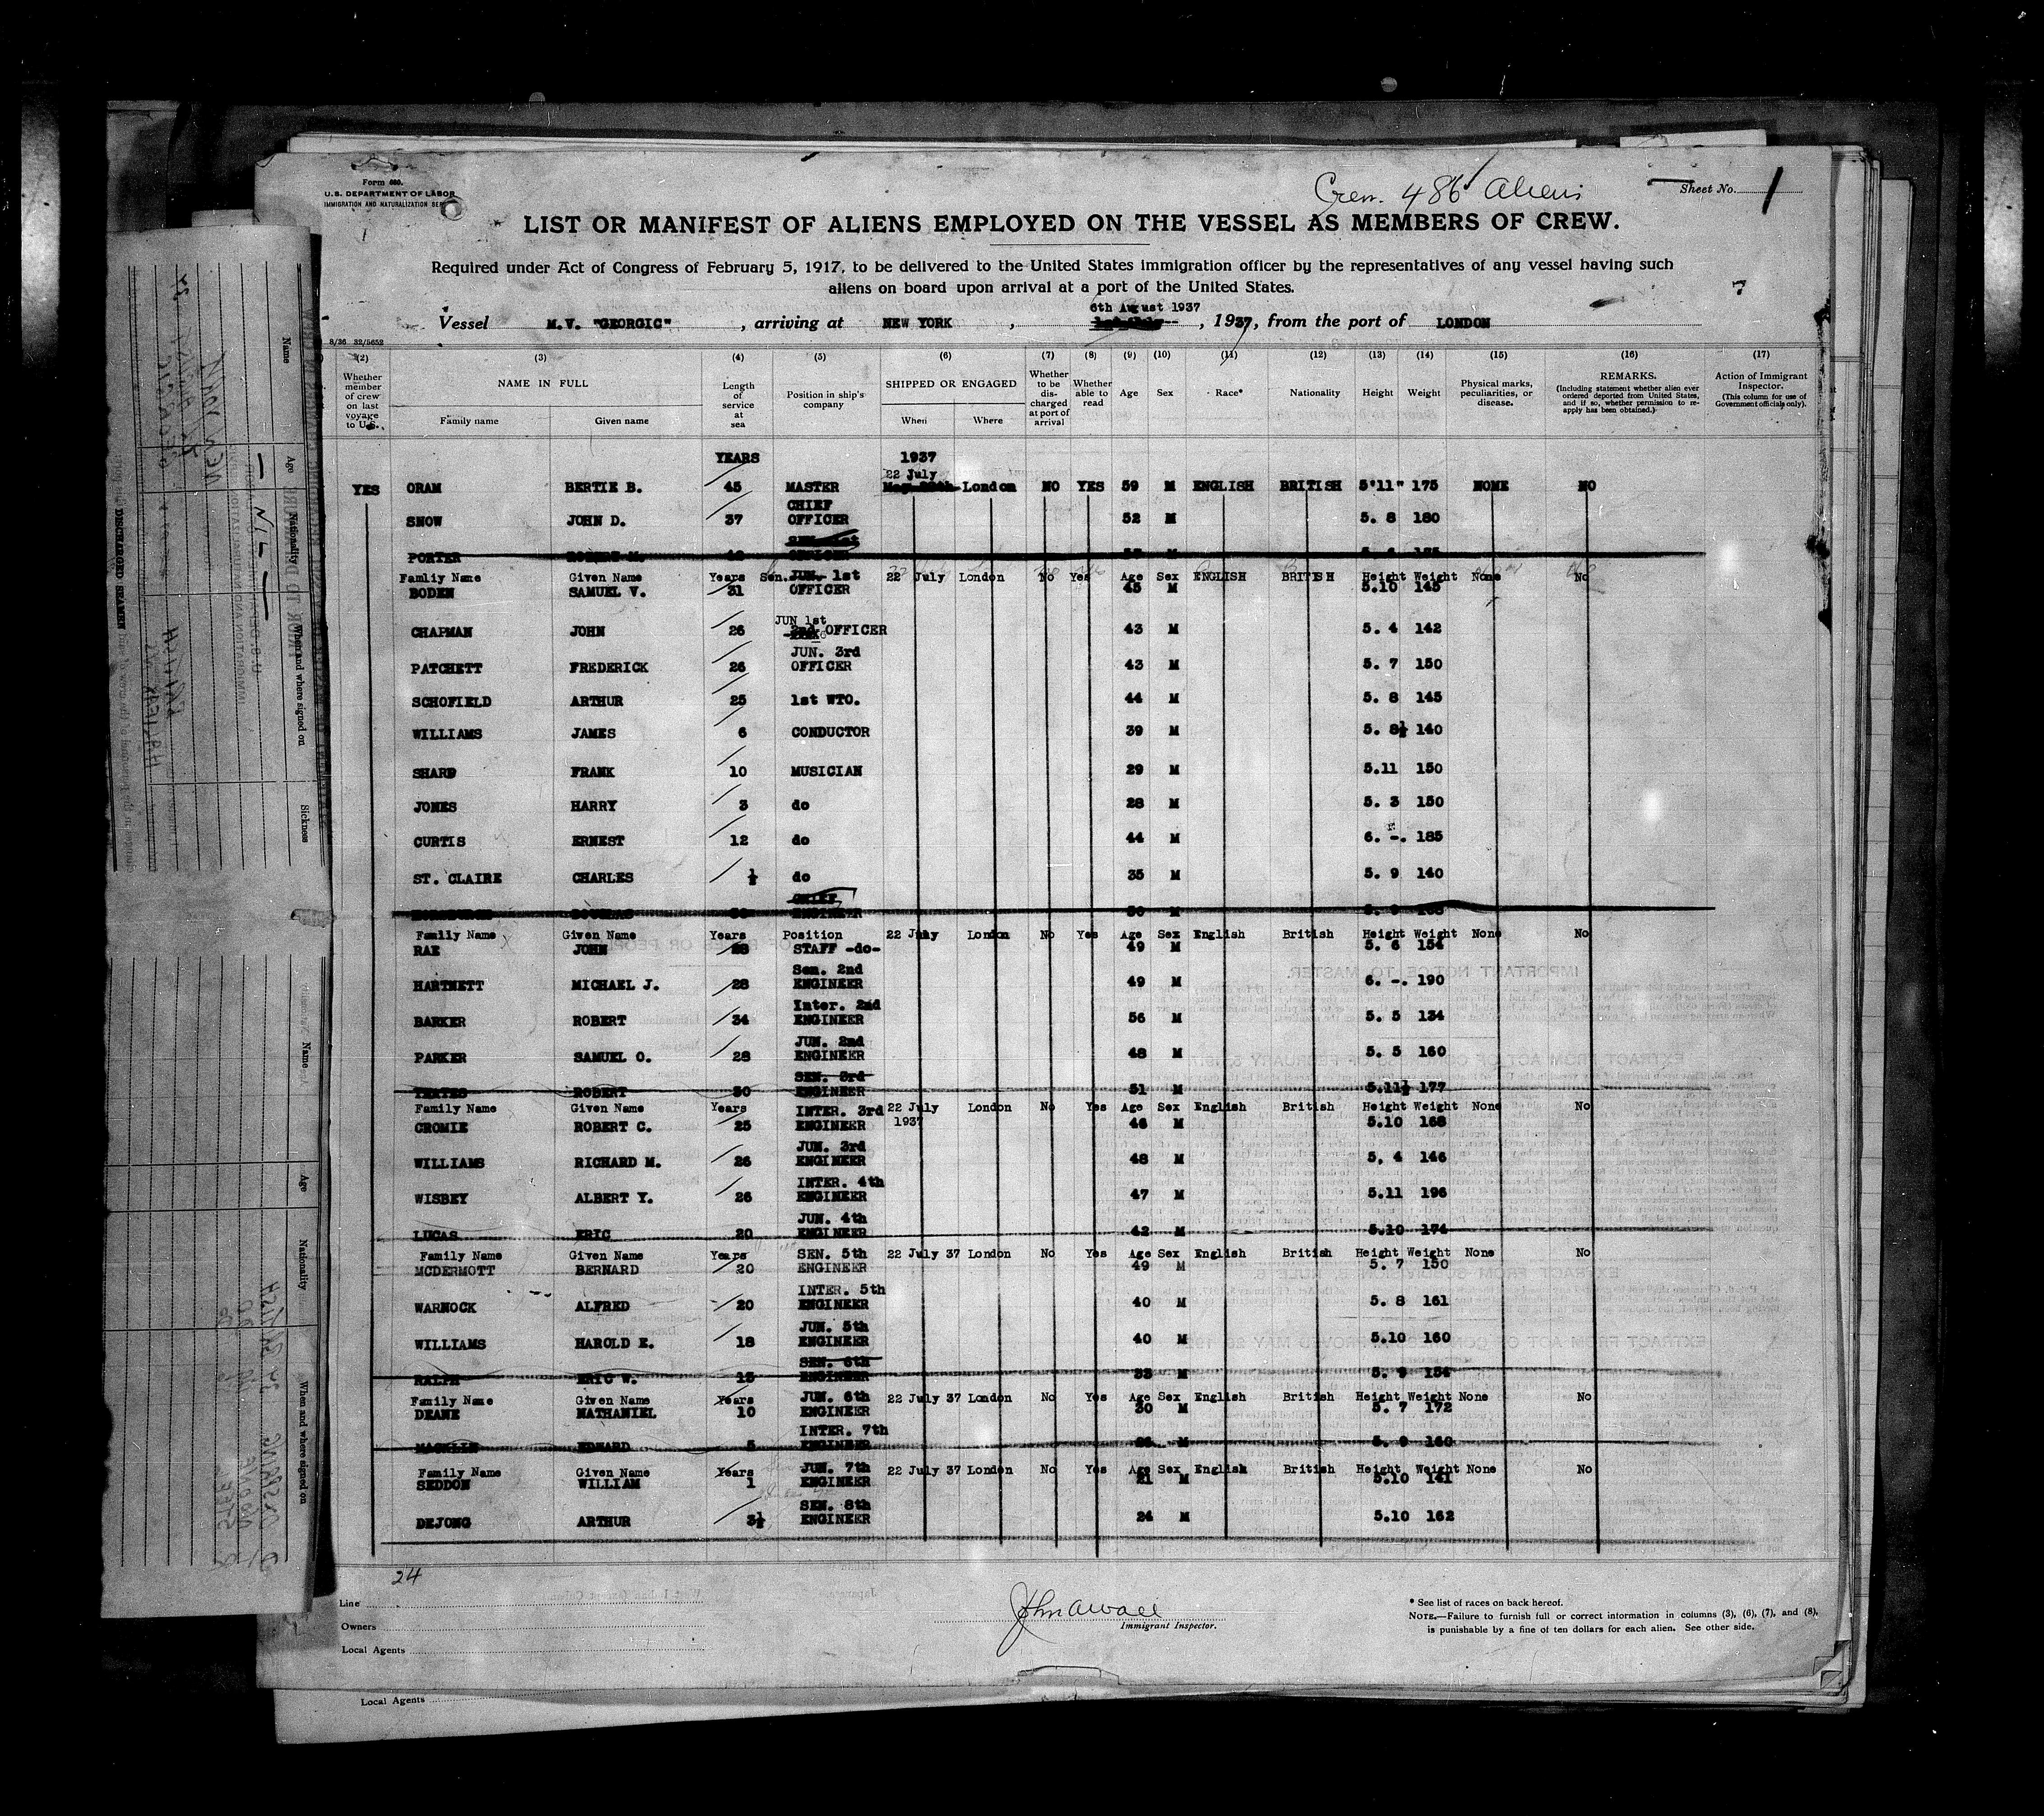 Crew. 486 Aliens
Sheet No. 1
Form 680.
U.S. DEPARTMENT OF LABOR
IMMIGRATION AND NATURALIZATION SER
LIST OR MANIFEST OF ALIENS EMPLOYED ON THE VESSEL AS MEMBERS OF CREW.
Required under Act of Congress of February 5, 1917, to be delivered to the United States immigration officer by the representatives of any vessel having such
aliens on board upon arrival at a port of the United States.
6th August 1937
Vessel M.V. "GEORGIC" , arriving at NEW YORK , , 1937, from the port of LONDON
8/36 32/5652
(2) (3) (4) (5) (6) (7) (8) (9) (10) (11) (12) (13) (14) (15) (16) (17)
Whether member of crew on last voyage to U.S.
NAME IN FULL
Family name Given name
Length of service at sea
Position in ship's company
SHIPPED OR ENGAGED
When Where
Whether to be discharged at port of arrival
Whether able to read
Age Sex Race* Nationality Height Weight
Physical marks, peculiarities, or disease.
REMARKS.
(Including statement whether alien ever ordered deported from United States, and if so, whether permission to reapply has been obtained.)
Action of Immigrant Inspector.
(This column for use of Government officials only).
YEARS 1937
22 July
YES ORAM BERTIE B. 45 MASTER London NO YES 59 M ENGLISH BRITISH 5'11" 175 NONE NO
SNOW JOHN D. 37 CHIEF OFFICER 52 M 5. 8 180
PORTER
Famliy Name Given Name Years Sen. 1st 22 July London No Yes Age Sex ENGLISH BRITISH Height Weight None No
BODEN SAMUEL V. 31 OFFICER 45 M 5.10 145
CHAPMAN JOHN 26 JUN 1st OFFICER 43 M 5. 4 142
PATCHETT FREDERICK 26 JUN. 3rd OFFICER 43 M 5. 7 150
SCHOFIELD ARTHUR 25 1st WTO. 44 M 5. 8 145
WILLIAMS JAMES 6 CONDUCTOR 39 M 5. 8½ 140
SHARD FRANK 10 MUSICIAN 29 M 5.11 150
JONES HARRY 3 do 28 M 5. 3 150
CURTIS ERNEST 12 do 44 M 6. -. 185
ST. CLAIRE CHARLES ½ do 35 M 5. 9 140
CHIEF
Family Name Given Name Years Position 22 July London No Yes Age Sex English British Height Weight None No
RAE JOHN 28 STAFF -do- 49 M 5. 6 154
HARTNETT MICHAEL J. 28 Sen. 2nd ENGINEER 49 M 6. -. 190
BARKER ROBERT 34 Inter. 2nd ENGINEER 56 M 5. 5 134
PARKER SAMUEL O. 28 JUN. 2nd ENGINEER 48 M 5. 5 160
ROBERT 30 SEN. 3rd ENGINEER 51 M 5.11½ 177
Family Name Given Name Years INTER. 3rd 22 July London No Yes Age Sex English British Height Weight None No
CROMIE ROBERT C. 25 ENGINEER 1937 46 M 5.10 168
WILLIAMS RICHARD M. 26 JUN. 3rd ENGINEER 48 M 5. 4 146
WISBEY ALBERT Y. 26 INTER. 4th ENGINEER 47 M 5.11 196
LUCAS ERIC 20 JUN. 4th ENGINEER 42 M 5.10 174
Family Name Given Name Years SEN. 5th 22 July 37 London No Yes Age Sex English British Height Weight None No
MCDERMOTT BERNARD 20 ENGINEER 49 M 5. 7 150
WARNOCK ALFRED 20 INTER. 5th ENGINEER 40 M 5. 8 161
WILLIAMS HAROLD E. 18 JUN. 5th ENGINEER 40 M 5.10 160
RALPH ERIC W. 15 SEN. 6th ENGINEER 33 M 5. 9 154
Family Name Given Name Years JUN. 6th 22 July 37 London No Yes Age Sex English British Height Weight None No
DEANE NATHANIEL 10 ENGINEER 30 M 5. 7 172
EDWARD 5 INTER. 7th ENGINEER M 5. 9 160
Family Name Given Name Years JUN. 7th 22 July 37 London No Yes Age Sex English British Height Weight None No
SEDDON WILLIAM 1 ENGINEER 21 M 5.10 141
DEJONG ARTHUR 3½ SEN. 8th ENGINEER 24 M 5.10 162
24
Line
Owners
Local Agents
Immigrant Inspector.
* See list of races on back hereof.
NOTE.—Failure to furnish full or correct information in columns (3), (6), (7), and (8), is punishable by a fine of ten dollars for each alien. See other side.
Local Agents
Name
Age
Nationality
When and where signed on
Sickness
DISCHARGED SEAMEN
Name
Age
Nationality
When and where signed on